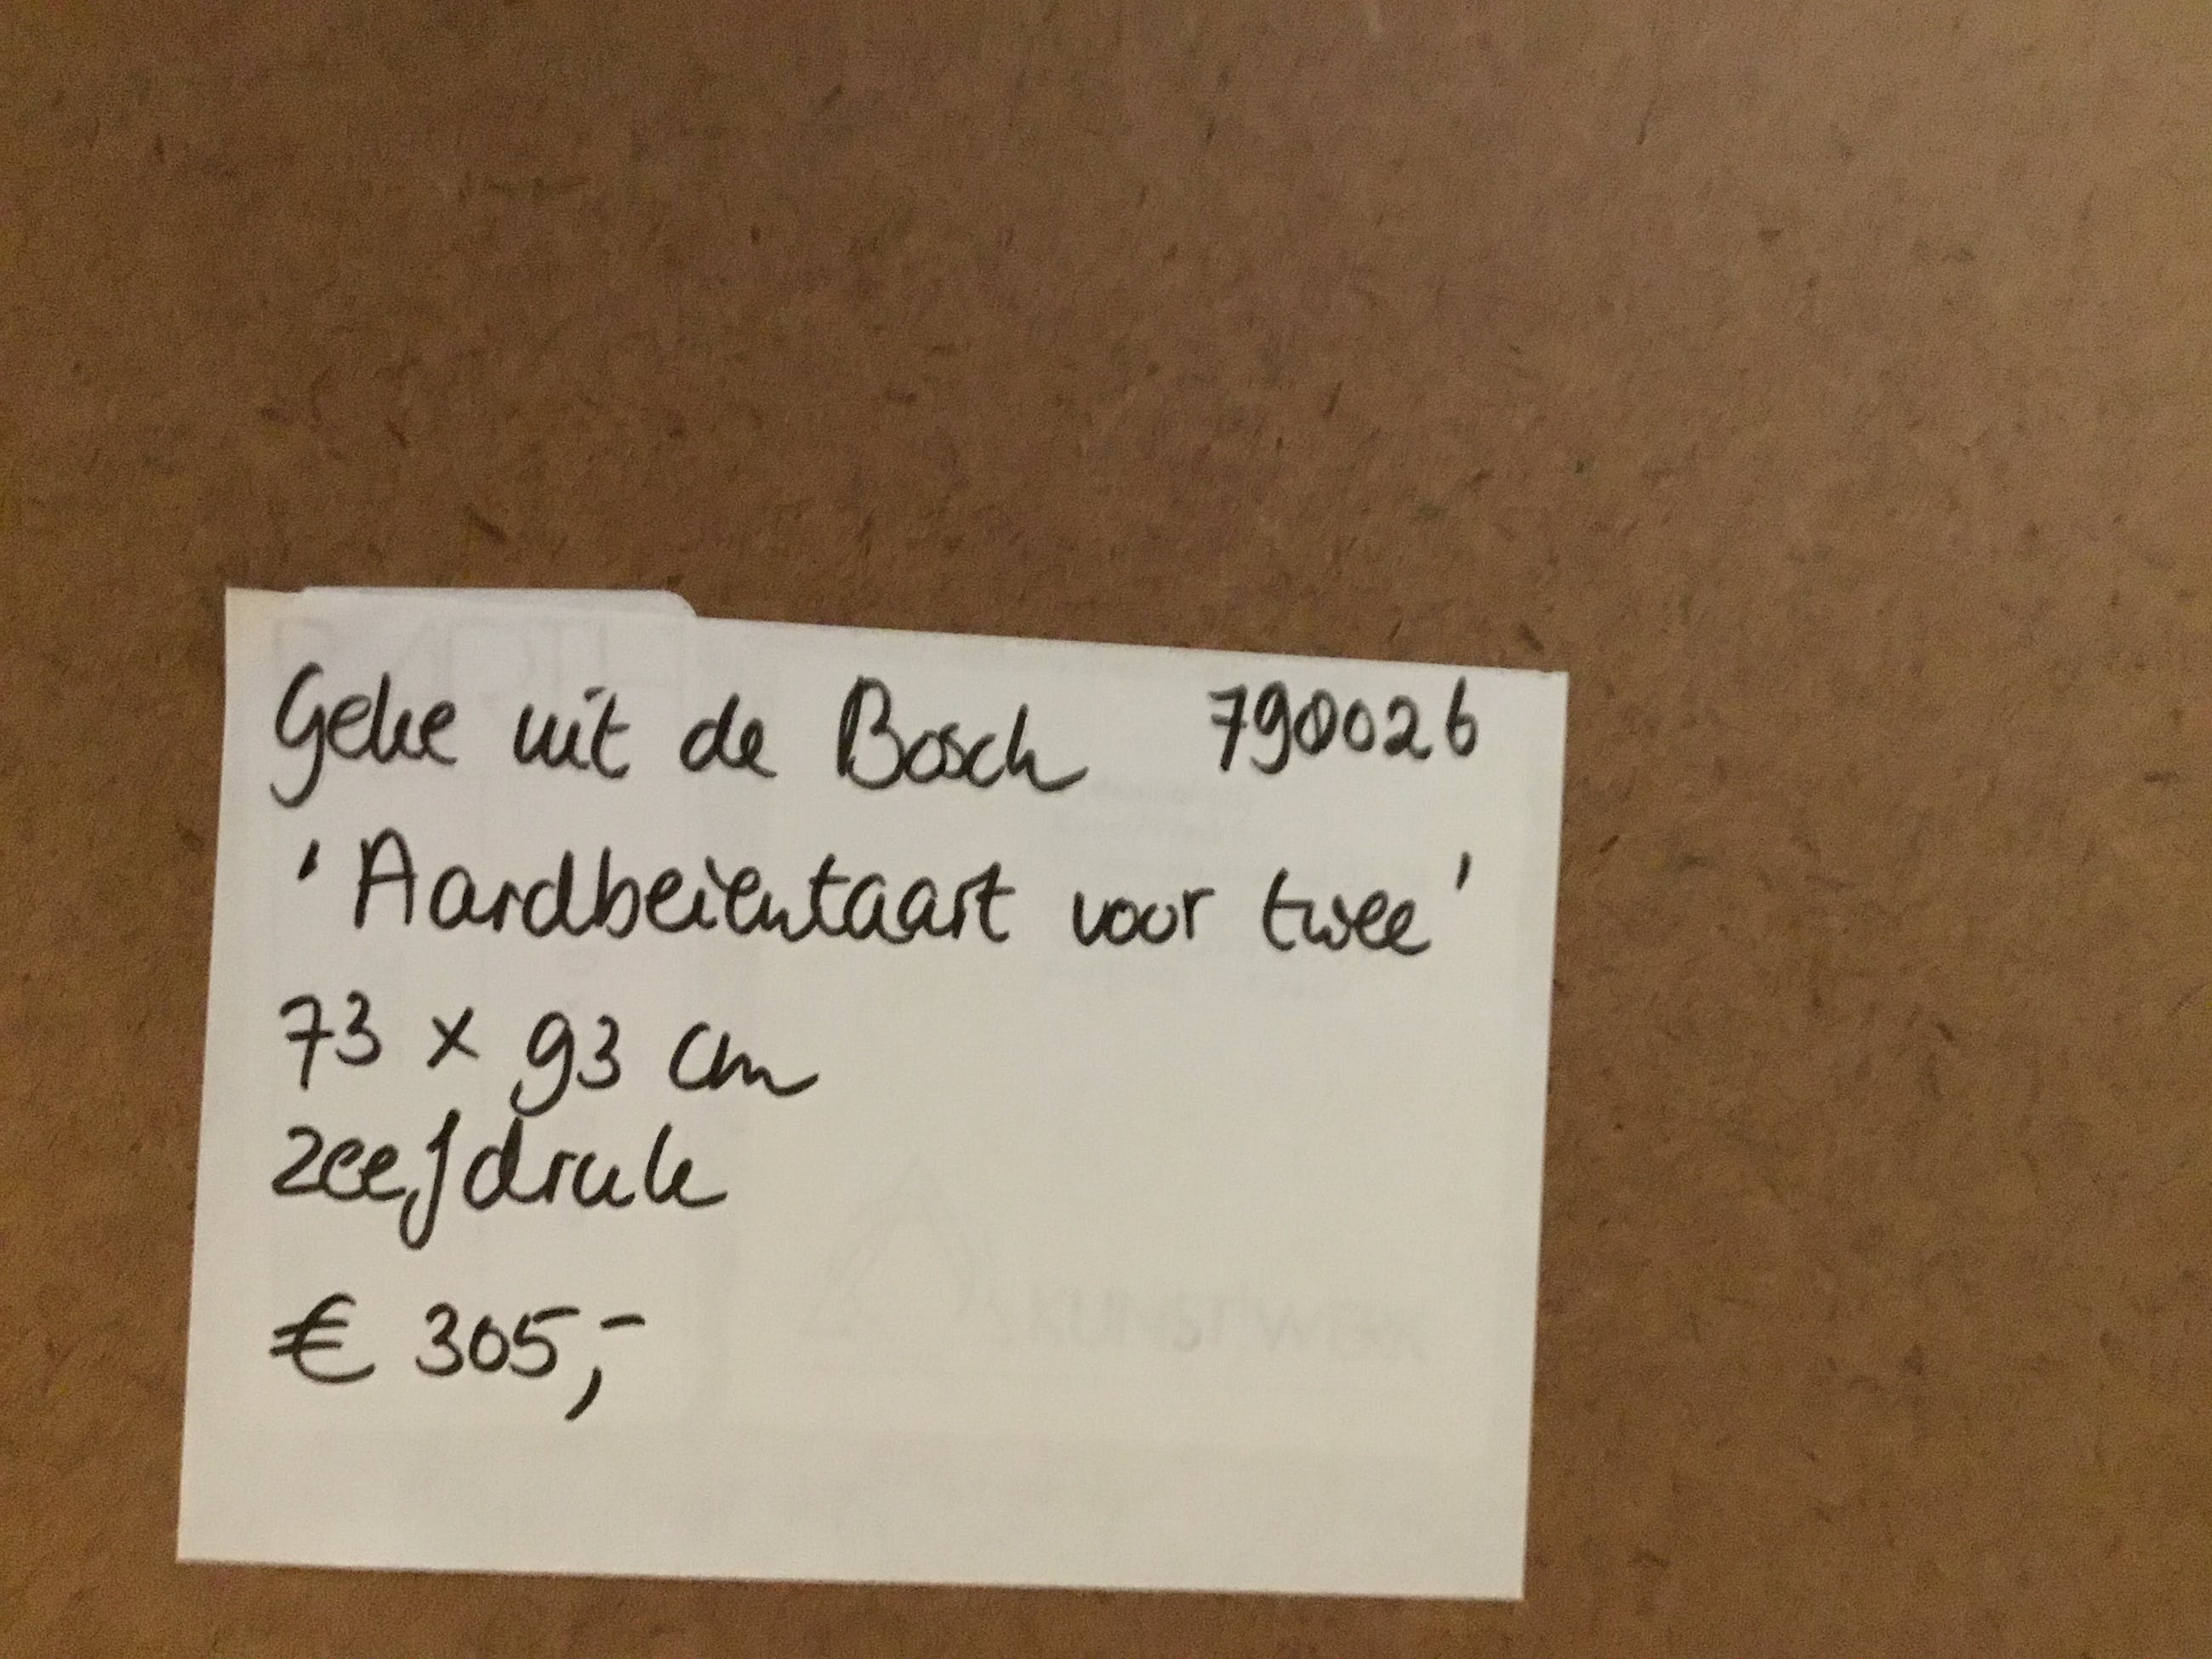 Geke uit de Bosch 790026
'Aardbeientaart voor twee'
73 x 93 cm
zeefdruk
€ 305,-